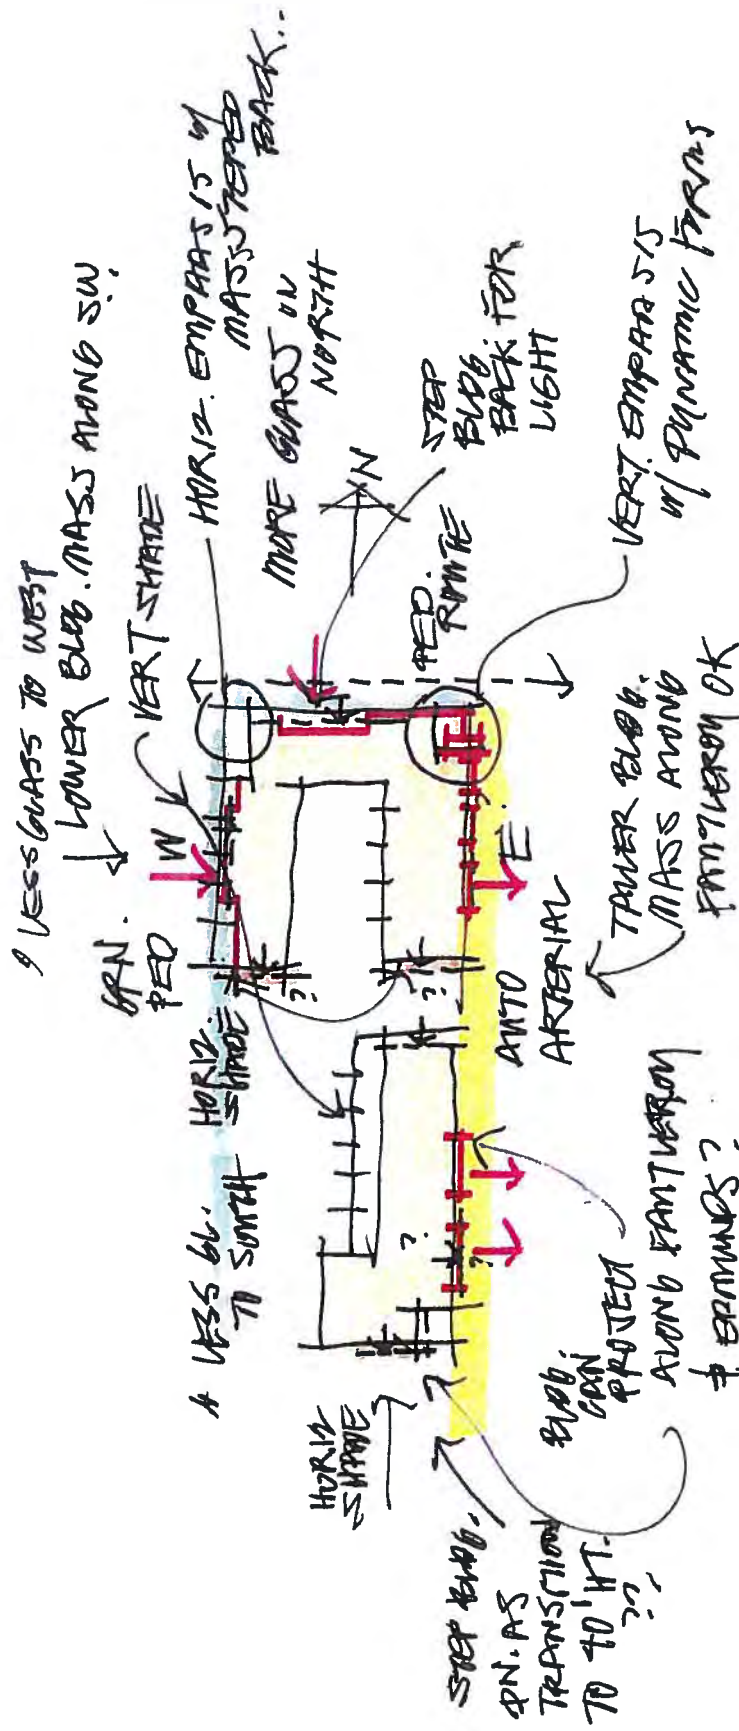 LESS GLASS TO WEST
LOWER BLDG. MASS ALONG SW.
VERT SHADE
HORIZ. EMPHASIS W/
MASS STEPPED
BACK..
MORE GLASS ON
NORTH
N
STEP
BLDG.
BACK FOR
LIGHT
PED.
ROUTE
VERT EMPHASIS
W/ DYNAMIC FORMS
GRN.
PED
W
HORIZ.
SHADE
LESS GL.
TO SOUTH
?
?
?
?
E.
AUTO
ARTERIAL
TALLER BLDG.
MASS ALONG
FAUNTLEROY OK
HORIZ
SHADE
BLDG.
CAN
PROJECT
ALONG FAUNTLEROY
STEP BLDG.
DN. AS
TRANSITION
TO 40' HT.
??